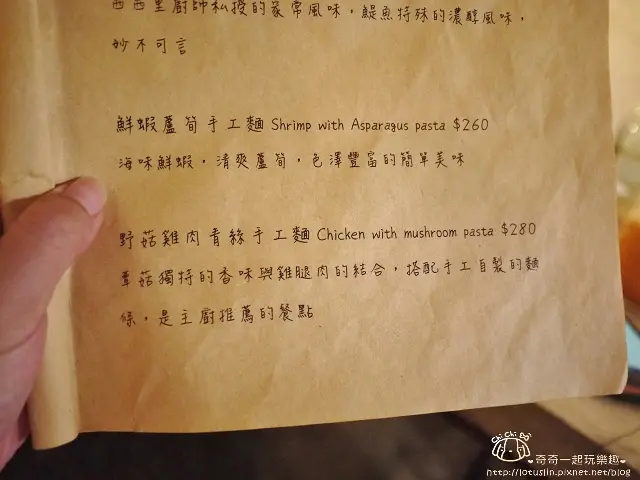 西西里廚師私授的家常風味，鯷魚特殊的濃醇風味，
妙不可言
鮮蝦蘆筍手工麵 Shrimp with Asparagus pasta $260
海味鮮蝦，清爽蘆筍，色澤豐富的簡單美味
野菇雞肉青絲手工麵 Chicken with mushroom pasta $280
草菇獨特的香味與雞腿肉的結合，搭配手工自製的麵
條，是主廚推薦的餐點
Chi Chi Bo
奇奇一起玩樂趣
http://lotuslin.pixnet.net/blog